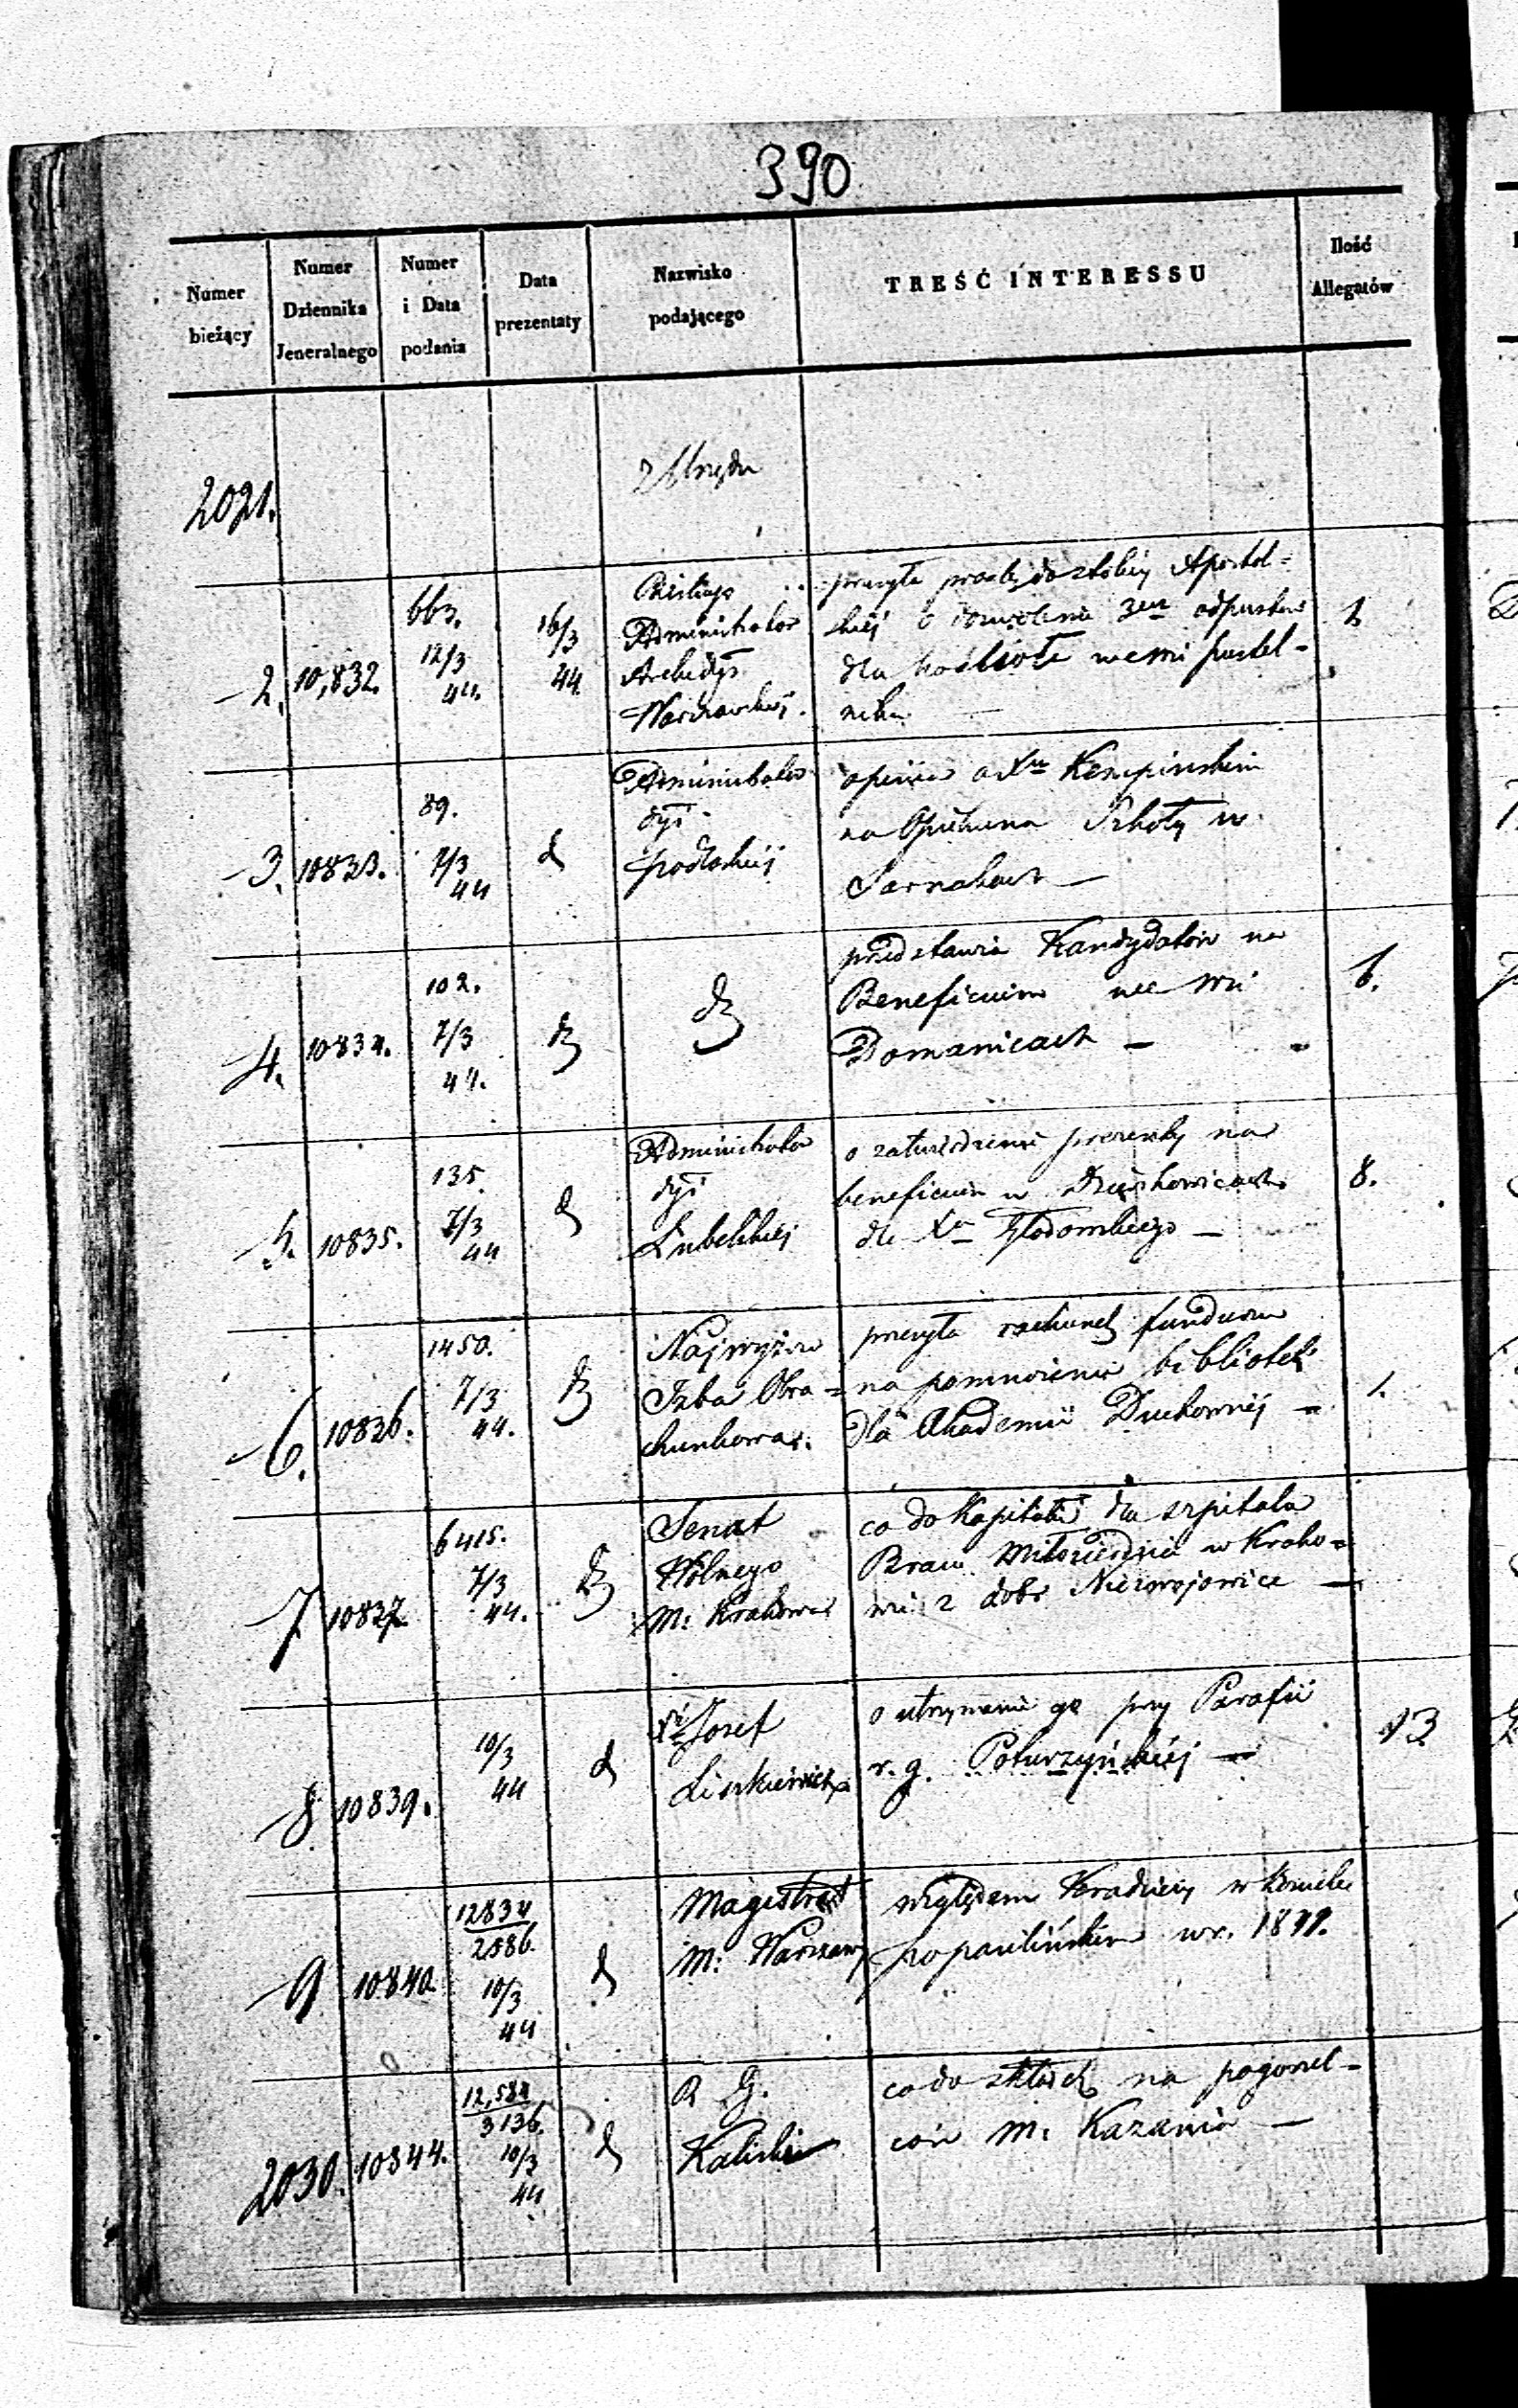 390
Numer bieżący
Numer Dziennika Jeneralnego
Numer i Data podania
Data prezentaty
Nazwisko podającego
TREŚĆ INTERESSU
Ilość Allegatów
2021.
z Urzędu
2. 10,832.
663.
12/3
44.
16/3
44
Administrator
Archidyś
Warszawskiej.
przesyła prośbę do stolicy Apostol=
skiej o dozwolenie 3ch odpustów
dla kościoła we wsi pustel-
nika
1
3. 10833.
89.
7/3
44
d
Administrator
dyś
podlaskiej
opinia o Xu Kempinskim
na Opiekuna Szkoły w
Sarnakach —
4. 10834.
102.
7/3
44.
d
d
przedstawia Kandydatów na
Beneficium we wsi
Domanicach —
6.
5. 10835.
135.
7/3
44
d
Administrator
dyś
Lubelskiej
o zatwierdzenie prezenty na
beneficium w
dla Xa
8.
6. 10836.
1450.
7/3
44.
d
Najwyższa
Izba Obra=
chunkowa.
przesyła rachunek funduszu
na pomnożenie biblioteki
dla Akademii Duchownéj —
1.
7 10837.
6415.
7/3
44.
d
Senat
Wolnego
M: Krakowa
co do Kapitału dla szpitala
Braci Miłosierdzia w Krako=
wie z dobr Niezwojowice —
8 10839.
10/3
44
d
Xż Jozef
Liszkiewicz
o utrzymanie go przy Parafii
r. g. Poturzyńskiéj —
13
9 10840.
12834
2586.
10/3
44
d
Magistrat
M: Warszawy
względem Kradzieży w Kościele
popaulińskim w r.
2030. 10844.
12,584
3136.
10/3
44
d
R G.
Kaliski
co do składek na pogorzel-
ców M: Kazania —